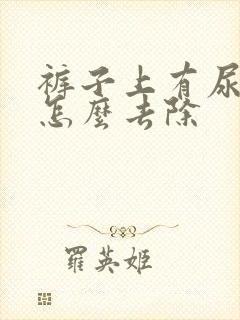 裤子上有尿
怎麼去除
羅英姬